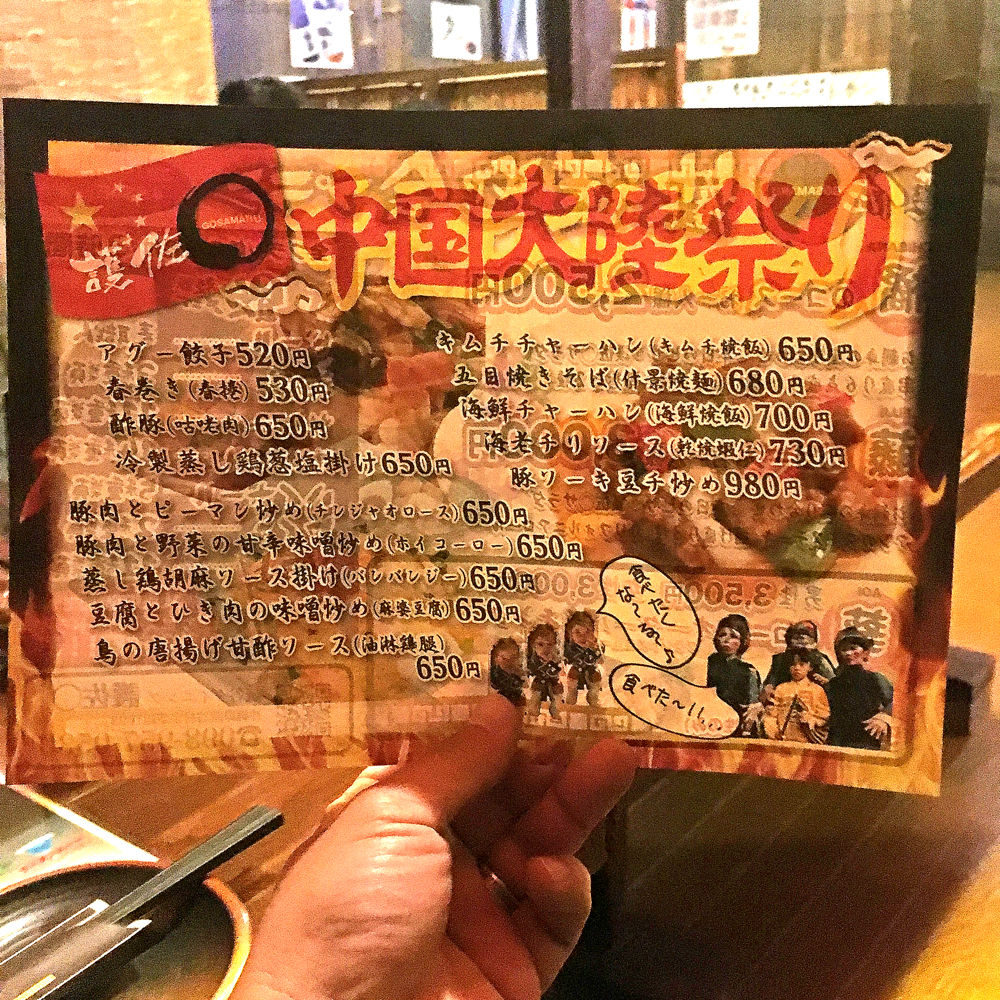 護佐
GOSAMARU
中国大陸祭り
アグー餃子520円
春巻き(春捲)530円
酢豚(咕咾肉)650円
冷製蒸し鶏葱塩掛け650円
豚肉とピーマン炒め(チンジャオロース)650円
豚肉と野菜の甘辛味噌炒め(ホイコーロー)650円
蒸し鶏胡麻ソース掛け(バンバンジー)650円
豆腐とひき肉の味噌炒め(麻婆豆腐)650円
鳥の唐揚げ甘酢ソース(油淋鶏腿)
650円
キムチチャーハン(キムチ焼飯)650円
五目焼きそば(什景焼麺)680円
海鮮チャーハン(海鮮焼飯)700円
海老チリソース(乾焼蝦仁)730円
豚ソーキ豆チ炒め980円
食べたく
な〜る〜♪
食べた〜い!